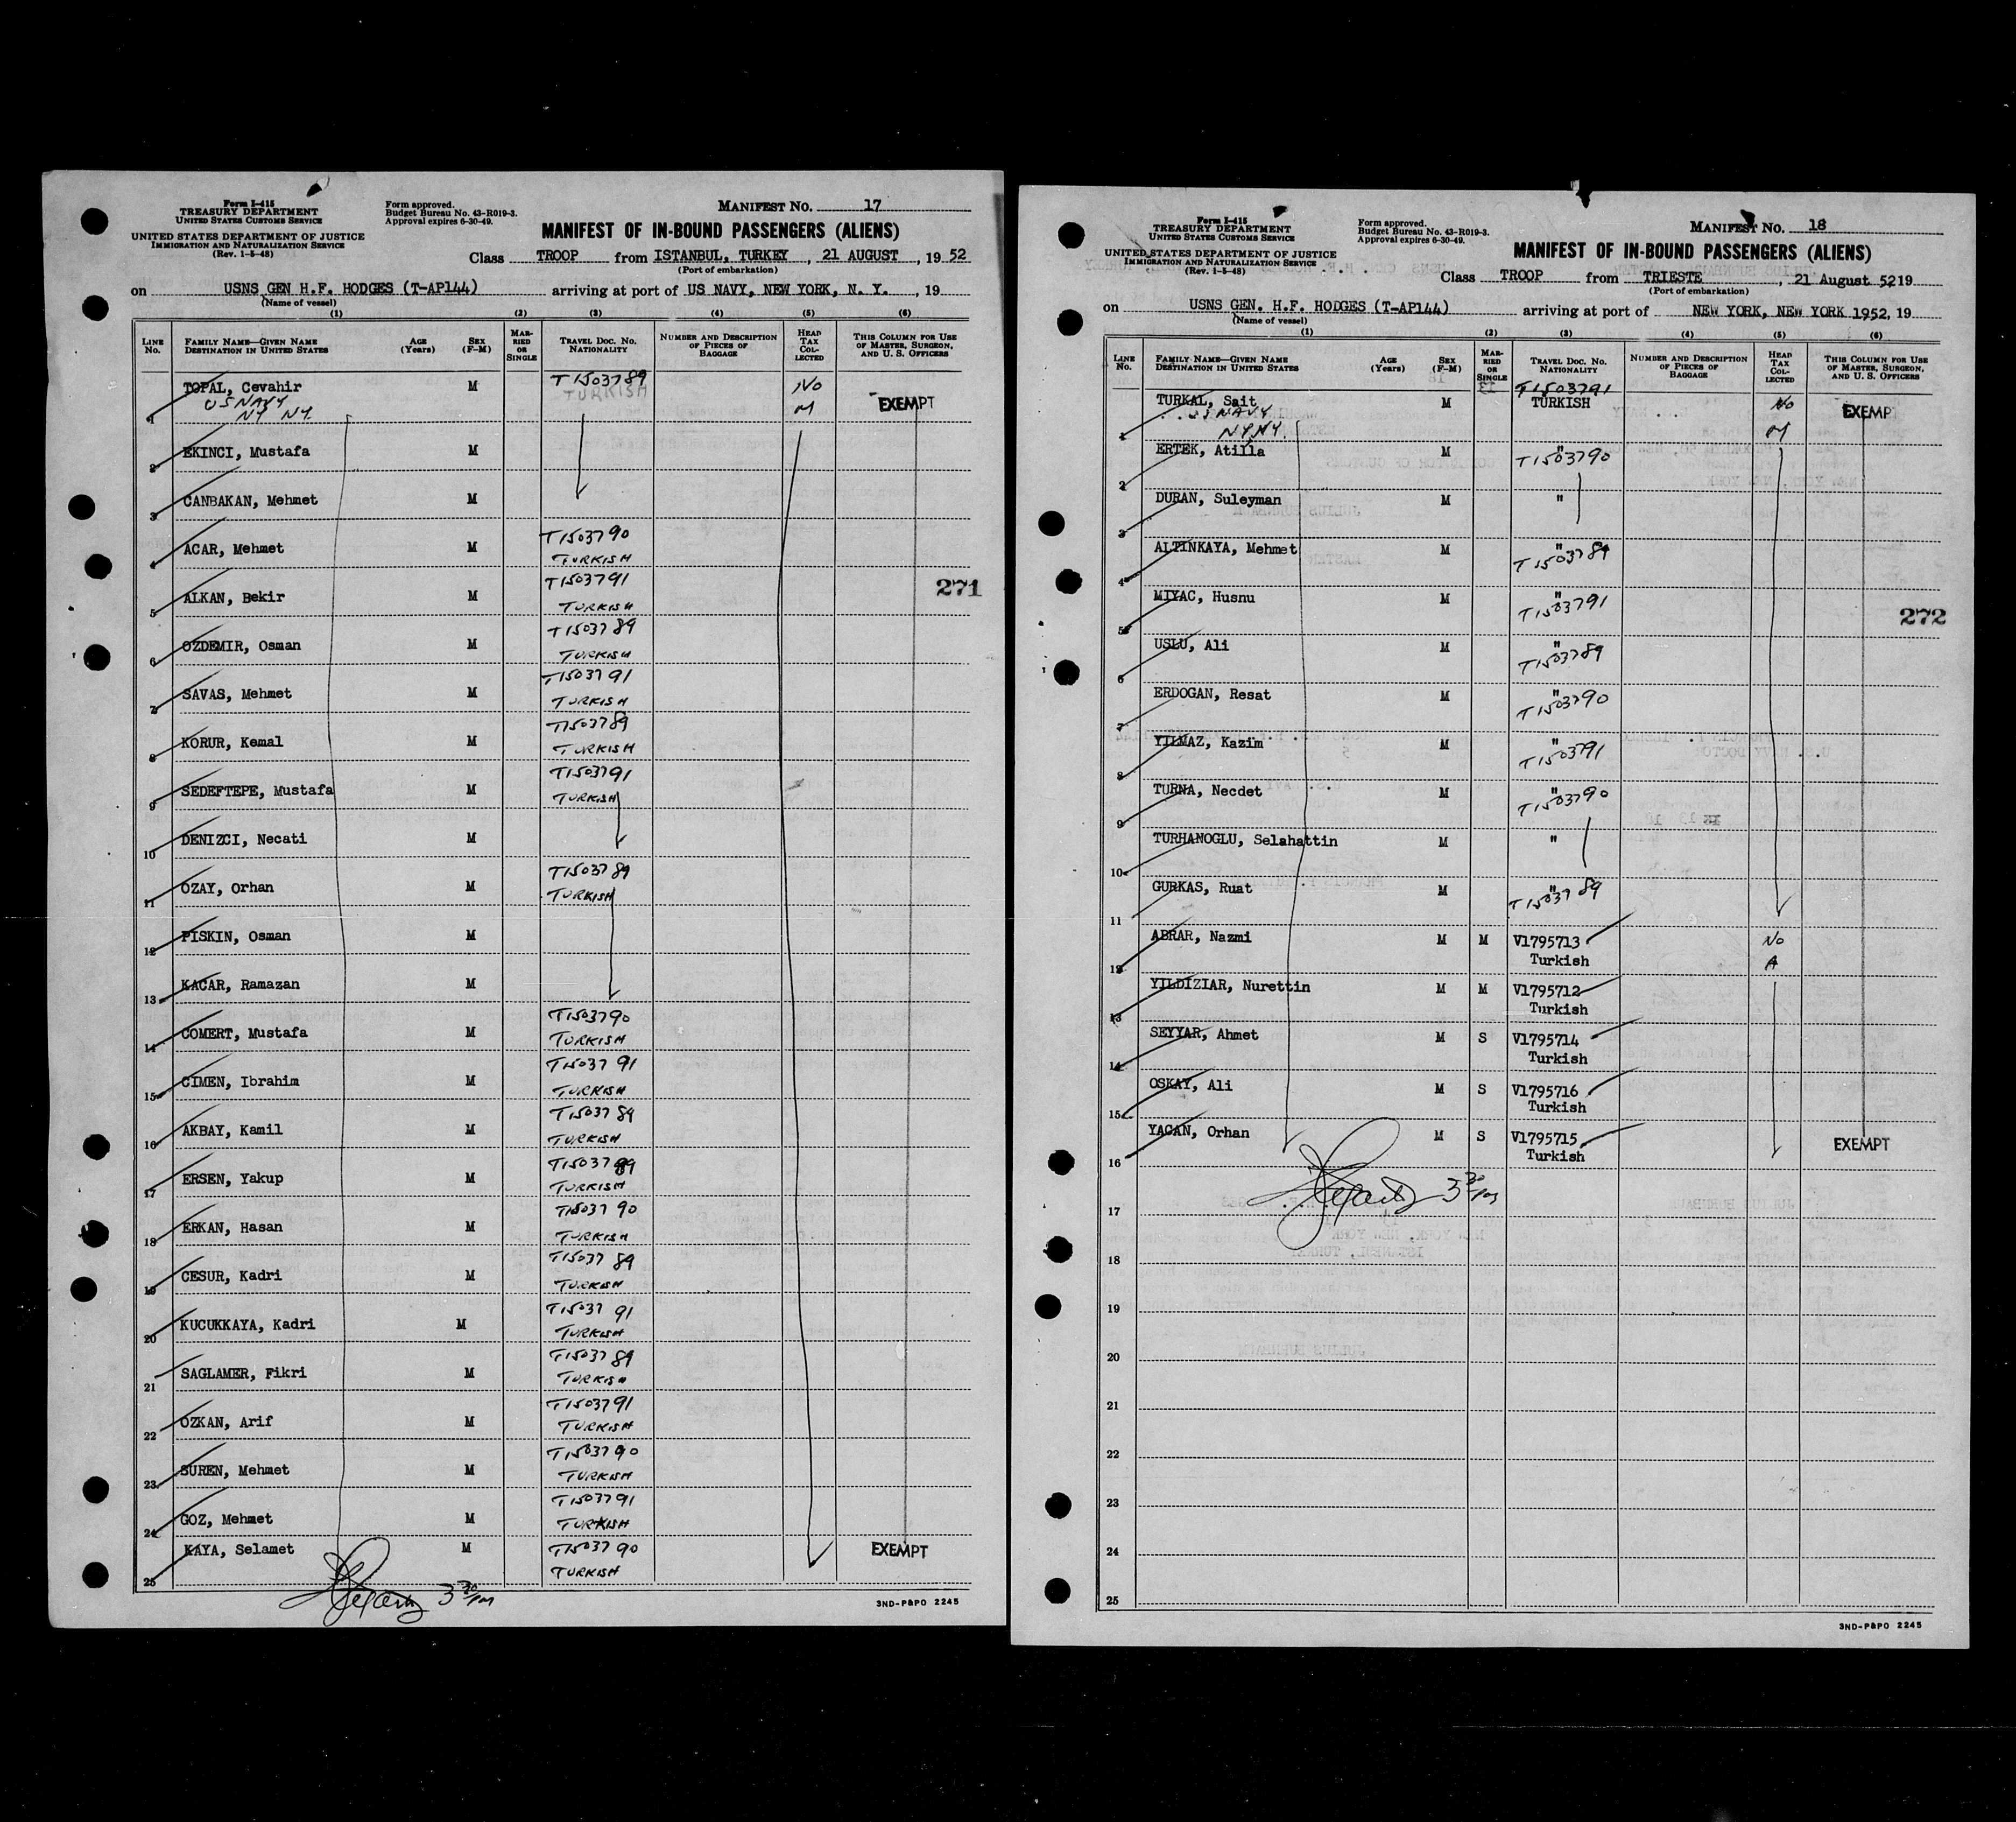 Form I-415
TREASURY DEPARTMENT
UNITED STATES CUSTOMS SERVICE
UNITED STATES DEPARTMENT OF JUSTICE
IMMIGRATION AND NATURALIZATION SERVICE
(Rev. 1-5-48)
Form approved.
Budget Bureau No. 43-R019-3.
Approval expires 6-30-49.
MANIFEST NO. 17
MANIFEST OF IN-BOUND PASSENGERS (ALIENS)
Class TROOP from ISTANBUL, TURKEY, 21 AUGUST, 19 52
(Port of embarkation)
on USNS GEN H.F. HODGES (T-AP144) arriving at port of US NAVY, NEW YORK, N. Y., 19
(Name of vessel)
(1) (2) (3) (4) (5) (6)
LINE NO. FAMILY NAME—GIVEN NAME DESTINATION IN UNITED STATES AGE (Years) SEX (F-M) MARRIED OR SINGLE TRAVEL DOC. NO. NATIONALITY NUMBER AND DESCRIPTION OF PIECES OF BAGGAGE HEAD TAX COLLECTED THIS COLUMN FOR USE OF MASTER, SURGEON, AND U. S. OFFICERS
1 TOPAL, Cevahir M T1503789 TURKISH No M EXEMPT
US NAVY
NY NY.
2 EKINCI, Mustafa M
3 CANBAKAN, Mehmet M
4 ACAR, Mehmet M T1503790 TURKISH
5 ALKAN, Bekir M T1503791 TURKISH
271
6 OZDEMIR, Osman M T1503789 TURKISH
7 SAVAS, Mehmet M T1503791 TURKISH
8 KORUR, Kemal M T1503789 TURKISH
9 SEDEFTEPE, Mustafa M T1503791 TURKISH
10 DENIZCI, Necati M
11 OZAY, Orhan M T1503789 TURKISH
12 PISKIN, Osman M
13 KACAR, Ramazan M
14 COMERT, Mustafa M T1503790 TURKISH
15 CIMEN, Ibrahim M T1503791 TURKISH
16 AKBAY, Kamil M T1503789 TURKISH
17 ERSEN, Yakup M T1503789 TURKISH
18 ERKAN, Hasan M T1503790 TURKISH
19 CESUR, Kadri M T1503789 TURKISH
20 KUCUKKAYA, Kadri M T1503791 TURKISH
21 SAGLAMER, Fikri M T1503789 TURKISH
22 OZKAN, Arif M T1503791 TURKISH
23 SUREN, Mehmet M T1503790 TURKISH
24 GOZ, Mehmet M T1503791 TURKISH
25 KAYA, Selamet M T1503790 TURKISH EXEMPT
3 30 PM
3ND-P&PO 2245
Form I-415
TREASURY DEPARTMENT
UNITED STATES CUSTOMS SERVICE
UNITED STATES DEPARTMENT OF JUSTICE
IMMIGRATION AND NATURALIZATION SERVICE
(Rev. 1-5-48)
Form approved.
Budget Bureau No. 43-R019-3.
Approval expires 6-30-49.
MANIFEST NO. 18
MANIFEST OF IN-BOUND PASSENGERS (ALIENS)
Class TROOP from TRIESTE, 21 August 5219
(Port of embarkation)
on USNS GEN. H.F. HODGES (T-AP144) arriving at port of NEW YORK, NEW YORK 1952, 19
(Name of vessel)
(1) (2) (3) (4) (5) (6)
LINE NO. FAMILY NAME—GIVEN NAME DESTINATION IN UNITED STATES AGE (Years) SEX (F-M) MARRIED OR SINGLE TRAVEL DOC. NO. NATIONALITY NUMBER AND DESCRIPTION OF PIECES OF BAGGAGE HEAD TAX COLLECTED THIS COLUMN FOR USE OF MASTER, SURGEON, AND U. S. OFFICERS
1 TURKAL, Sait M T1503791 TURKISH No M EXEMPT
US NAVY
NY, NY.
2 ERTEK, Atilla M " T1503790
3 DURAN, Suleyman M "
4 ALTINKAYA, Mehmet M " T1503789
5 MIYAC, Husnu M " T1503791
272
6 USLU, Ali M " T1503789
7 ERDOGAN, Resat M " T1503790
8 YILMAZ, Kazim M " T1503791
9 TURNA, Necdet M " T1503790
10 TURHANOGLU, Selahattin M "
11 GURKAS, Ruat M " T1503789
12 ABRAR, Nazmi M M V1795713 Turkish No A
13 YILDIZIAR, Nurettin M M V1795712 Turkish
14 SEYYAR, Ahmet M S V1795714 Turkish
15 OSKAY, Ali M S V1795716 Turkish
16 YACAN, Orhan M S V1795715 Turkish EXEMPT
3 30 PM
17
18
19
20
21
22
23
24
25
3ND-P&PO 2245